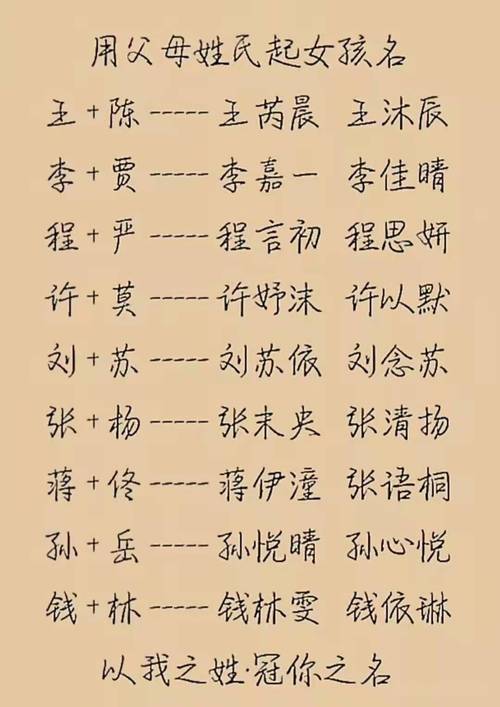 用父母姓氏起女孩名
王+陈-----王芮晨 王沐辰
李+贾-----李嘉一 李佳晴
程+严-----程言初 程思妍
许+莫-----许妤沫 许以默
刘+苏-----刘苏依 刘念苏
张+杨-----张未央 张清扬
蒋+佟-----蒋伊潼 张语桐
孙+岳-----孙悦晴 孙心悦
钱+林-----钱林雯 钱依琳
以我之姓·冠你之名